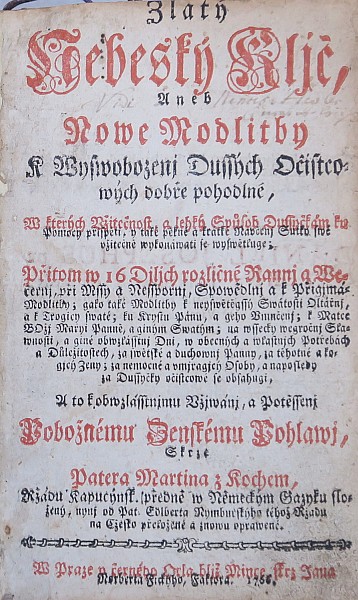 Zlatý
Nebeský Kljč,
Aneb
Nowe Modlitby
K Wyswobozenj Dussých Očistco-
wých dobře pohodlné,
W kterých Vžitečnost, a lehký Spůsob Dussyčkám ku
Pomocy přispěti, y také pěkné a krátké Náwčenj Skutky swé
vžitečně wykonáwati se wyswětluge;
Přitom w 16 Diljch rozličné Rannj a We-
černj, při Mssy a Nesspornj, Spowědlnj a k Přigjmá-
Modlitby; gako také Modlitby k neyswětěgssý Swátosti Oltářnj,
a k Trogicy swaté; ku Krystu Pánu, a geho Vmučenj; k Matce
BOžj Maryi Panně, a giným Swatým; na wssecky wegročnj Sla-
wnosti, a giné obwzlásstnj Dni, w obecných a wlastných Potřebách
a Důležitostech, za swětské a duchownj Panny, za těhotné a ko-
gjcý Ženy; za nemocné a vmjragjcý Osoby, a naposledy
za Dussyčky očistcowé se obsahugj,
A to k obwzlásstnjmu Vžjwánj, a Potěssenj
Pobožnému Ženskému Pohlawj,
Skrze
Patera Martina z Kochem,
Ržádu Kapucýnsk. předně w Německým Gazyku slo-
žený, nynj od Pat. Edlberta Nymburskýho téhož Ržádu
na Czesko přeložené a znowu oprawené.
W Praze v černého Orla bljž Mince skrz Jana
Norberta Fickýho, Faktora. 1766.